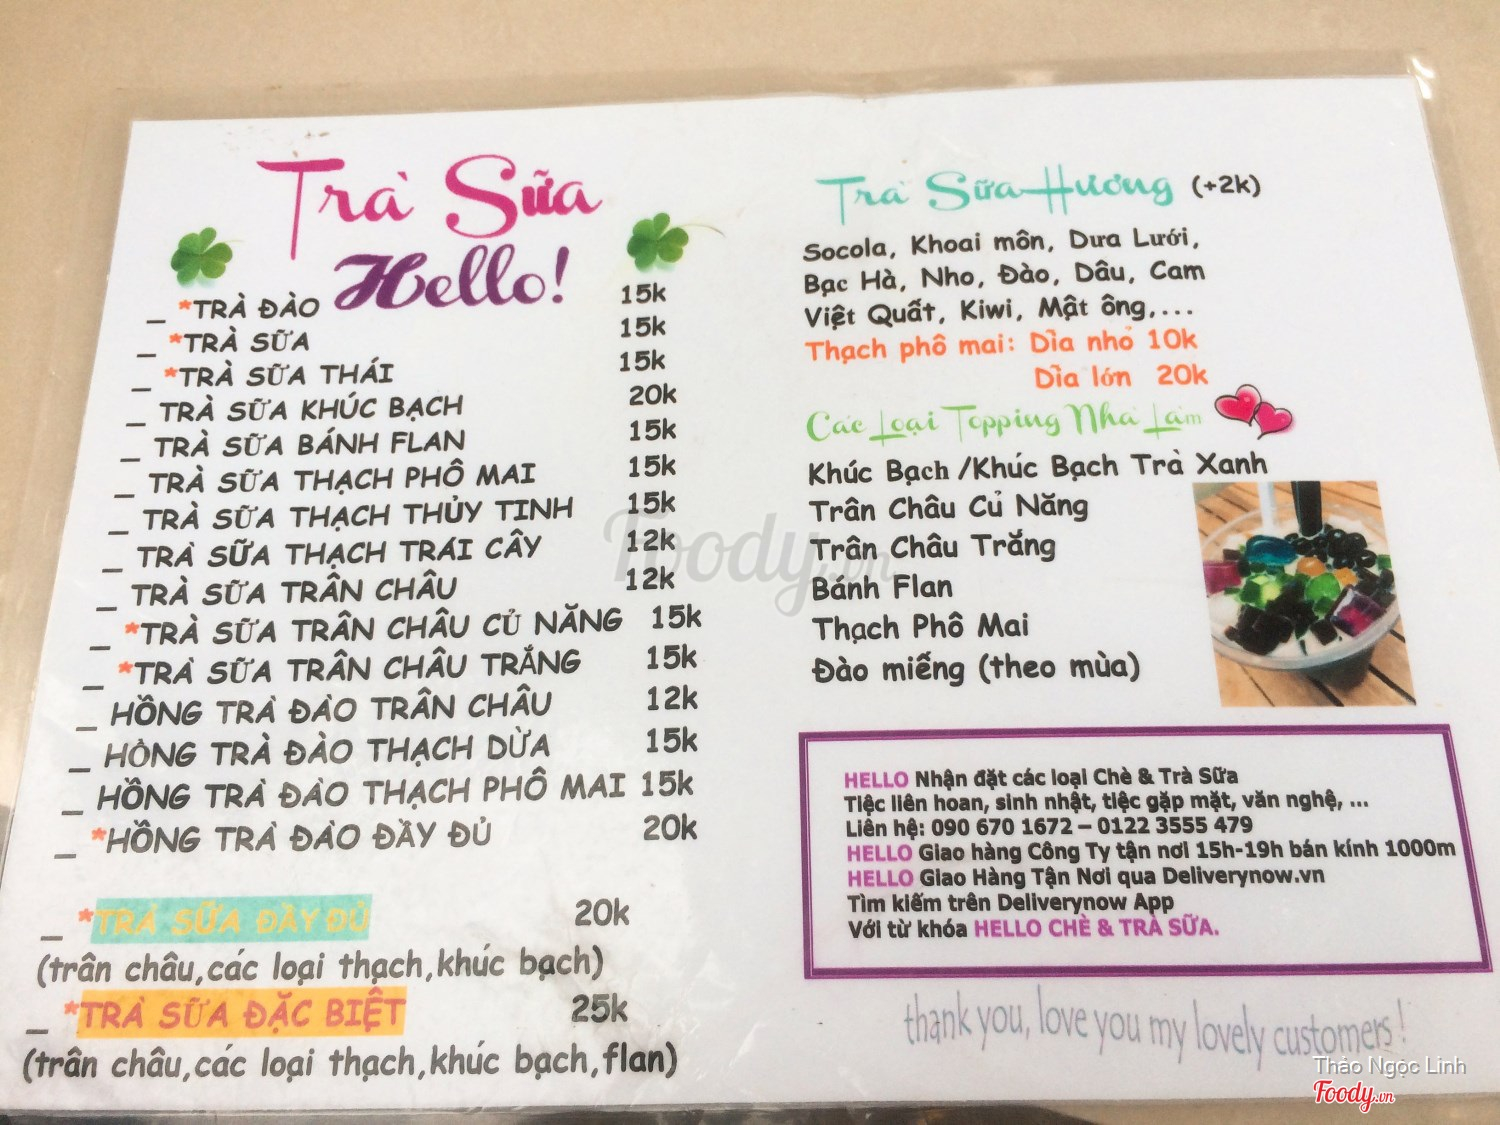 Trà Sữa
Hello!
_ *TRÀ ĐÀO 15k
_ *TRÀ SỮA 15k
_ *TRÀ SỮA THÁI 15k
_ TRÀ SỮA KHÚC BẠCH 20k
_ TRÀ SỮA BÁNH FLAN 15k
_ TRÀ SỮA THẠCH PHÔ MAI 15k
_ TRÀ SỮA THẠCH THỦY TINH 15k
_ TRÀ SỮA THẠCH TRÁI CÂY 12k
_ TRÀ SỮA TRÂN CHÂU 12k
_ *TRÀ SỮA TRÂN CHÂU CỦ NĂNG 15k
_ *TRÀ SỮA TRÂN CHÂU TRẮNG 15k
_ HỒNG TRÀ ĐÀO TRÂN CHÂU 12k
_ HỒNG TRÀ ĐÀO THẠCH DỪA 15k
_ HỒNG TRÀ ĐÀO THẠCH PHÔ MAI 15k
_ *HỒNG TRÀ ĐÀO ĐẦY ĐỦ 20k
_ *TRÀ SỮA ĐẦY ĐỦ 20k
(trân châu,các loại thạch,khúc bạch)
_ *TRÀ SỮA ĐẶC BIỆT 25k
(trân châu,các loại thạch,khúc bạch,flan)
Trà Sữa Hương (+2k)
Socola, Khoai môn, Dưa Lưới,
Bạc Hà, Nho, Đào, Dâu, Cam
Việt Quất, Kiwi, Mật ông,...
Thạch phô mai: Dìa nhỏ 10k
Dìa lớn 20k
Các Loại Topping Nhà Làm
Khúc Bạch /Khúc Bạch Trà Xanh
Trân Châu Củ Năng
Trân Châu Trắng
Bánh Flan
Thạch Phô Mai
Đào miếng (theo mùa)
HELLO Nhận đặt các loại Chè & Trà Sữa
Tiệc liên hoan, sinh nhật, tiệc gặp mặt, văn nghệ, ...
Liên hệ: 090 670 1672 – 0122 3555 479
HELLO Giao hàng Công Ty tận nơi 15h-19h bán kính 1000m
HELLO Giao Hàng Tận Nơi qua Deliverynow.vn
Tìm kiếm trên Deliverynow App
Với từ khóa HELLO CHÈ & TRÀ SỮA.
thank you, love you my lovely customers!
Foody.vn
Thảo Ngọc Linh
Foody.vn